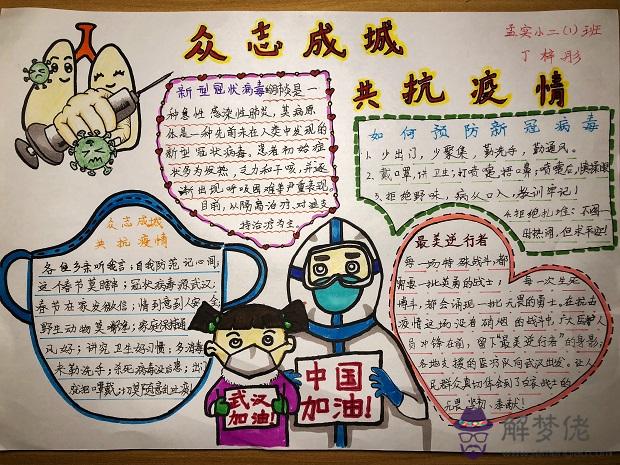 众志成城
共抗疫情
孟实小二(1)班
丁梓彤
新型冠状病毒的肺炎是一
种急性感染性肺炎,其病原
体是一种先前未在人类中发现的
新型冠状病毒。患者初始症
状多为发热,乏力和干咳,并逐
渐出现呼吸困难等严重表现。
目前,以隔离治疗、对症支
持治疗为主
如何预防新冠病毒
1、少出门,少聚集,勤洗手,勤通风。
2、戴口罩,讲卫生;打喷嚏,捂口鼻;喷嚏后,慎揉眼
3、拒绝野味,病从口入,教训牢记!
4、拒绝扎堆:不图一
时热闹,但求平安!
众志成城
共抗疫情
各位乡亲听我言;自我防范记心间;
这个春节莫瞎串;冠状病毒源武汉;
春节在家发微信;情到意到人安全
野生动物莫嘴馋;家居保持通
风好;讲究卫生好习惯;多消毒
来勤洗手;杀死病毒没后患;出门
就把口罩戴
最美逆行者
每一场特殊战斗,都
需要一批英勇的战士;每一次生死
搏斗,都会涌现一批无畏的勇士。在抗击
疫情这场没有硝烟的战斗中,广大医护人
员冲锋在前,留下"最美逆行者"的身影,
各地支援的医疗队向武汉出发。让人
民群众真切体会到了白衣战士的
无畏、坚韧、奉献!
武汉
加油!
中国
加油!
解梦佬